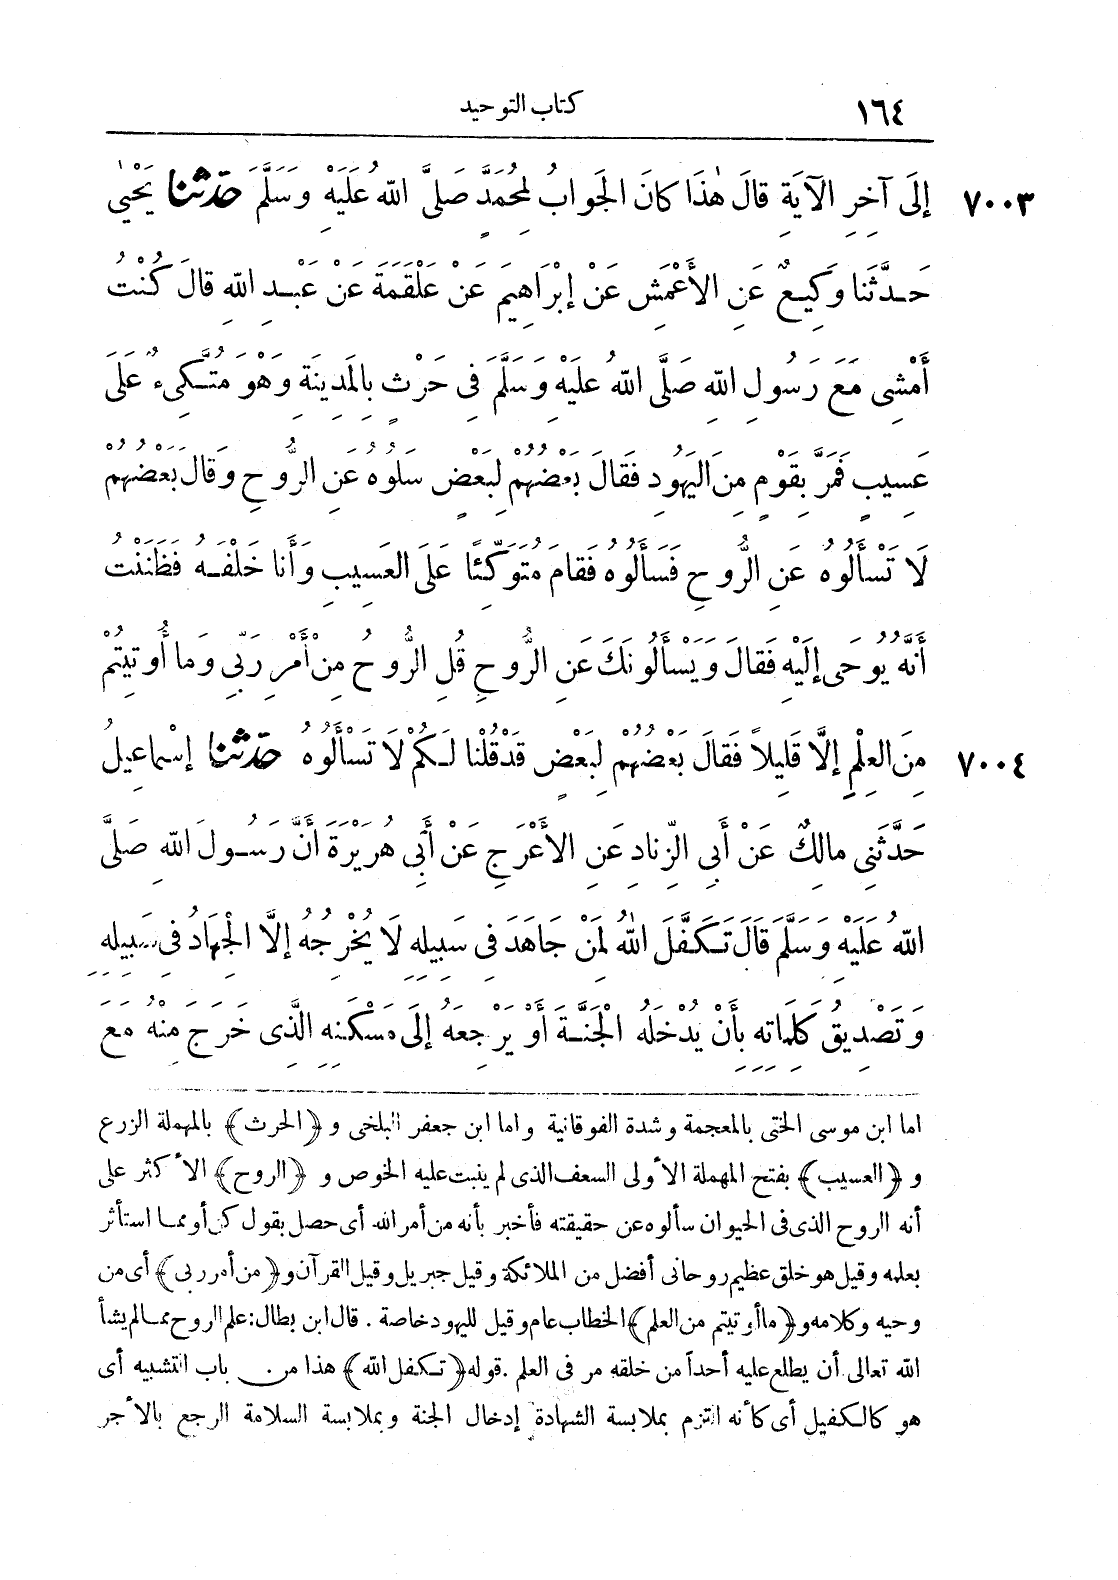 ١٦٤ كتاب التوحيد
٧٠٠٣ إِلَى آخِرِ الآيَةِ قالَ هٰذَا كانَ الجَوابُ لِمُحَمَّدٍ صَلَّى اللهُ عَلَيْهِ وَسَلَّمَ حَدَّثنا يَحْيٰى
حَـدَّثَنا وَكِيـعٌ عَنِ الأَعْمَشِ عَنْ إبْرَاهِيمَ عَنْ عَلْقَمَةَ عَنْ عَبْـدِ اللهِ قالَ كُنْتُ
أَمْشِى مَعَ رَسُولِ اللهِ صَلَّى اللهُ عَلَيْهِ وَسَلَّمَ فِى حَرْثٍ بِالمَدِينَةِ وَهُوَ مُتَّـكِىءٌ عَلَى
عَسِيبٍ فَمَرَّ بِقَوْمٍ مِنَ اليَهُودِ فَقَالَ بَعْضُهُمْ لِبَعْضٍ سَلُوهُ عَنِ الرُّوحِ وَقَالَ بَعْضُهُمْ
لَا تَسْأَلُوهُ عَنِ الرُّوحِ فَسَأَلُوهُ فَقامَ مُتَوَكِّئًا عَلَى العَسِيبِ وَأَنا خَلْفَـهُ فَظَنَنْتُ
أَنَّهُ يُوحَى إِلَيْهِ فَقالَ وَيَسْأَلُونَكَ عَنِ الرُّوحِ قُلِ الرُّوحُ مِنْ أَمْرِ رَبِّى وَما أُوتِيتُمْ
٧٠٠٤ مِنَ العِلْمِ إلَّا قَلِيلاً فَقالَ بَعْضُهُمْ لِبَعْضٍ قَدْ قُلْنا لَـكُمْ لَا تَسْأَلُوهُ حَدَّثنا إسْماعِيلُ
حَدَّثَنِى مالِكٌ عَنْ أَبِى الزِّنادِ عَنِ الأَعْرَجِ عَنْ أَبِى هُرَيْرَةَ أَنَّ رَسُـولَ اللهِ صَلَّى
اللهُ عَلَيْهِ وَسَلَّمَ قالَ تَـكَـفَّلَ اللهُ لِمَنْ جَاهَدَ فى سَبِيلِهِ لَا يُخْرِجُهُ إلَّا الْجِهَادُ فى سَبِيلِهِ
وَتَصْدِيقُ كَلِماتِهِ بِأَنْ يُدْخِلَهُ الْجَنَّـةَ أَوْ يَرْجِعَهُ إلَى مَسْكَنِهِ الَّذِى خَرَجَ مِنْهُ مَعَ
اما ابن موسى الختى بالمعجمة وشدة الفوقانية واما ابن جعفر البلخى و ﴿الحرث﴾ بالمهملة الزرع
و ﴿العسيب﴾ بفتح المهملة الأولى السعف الذى لم ينبت عليه الخوص و ﴿الروح﴾ الأكثر على
أنه الروح الذى فى الحيوان سألوه عن حقيقته فأخبر بأنه من أمر الله أى حصل بقول كن أو مما استأثر
بعلمه وقيل هو خلق عظيم روحانى أفضل من الملائكة وقيل جبريل وقيل القرآن و﴿من أمر ربى﴾ أى من
وحيه وكلامه و﴿ما أوتيتم من العلم﴾ الخطاب عام وقيل لليهود خاصة . قال ابن بطال: علم الروح مما لم يشأ
الله تعالى أن يطلع عليه أحداً من خلقه مر فى العلم . قوله ﴿تكفل الله﴾ هذا من باب التشبيه أى
هو كالكفيل أى كأنه التزم بملابسة الشهادة إدخال الجنة وبملابسة السلامة الرجع بالأجر